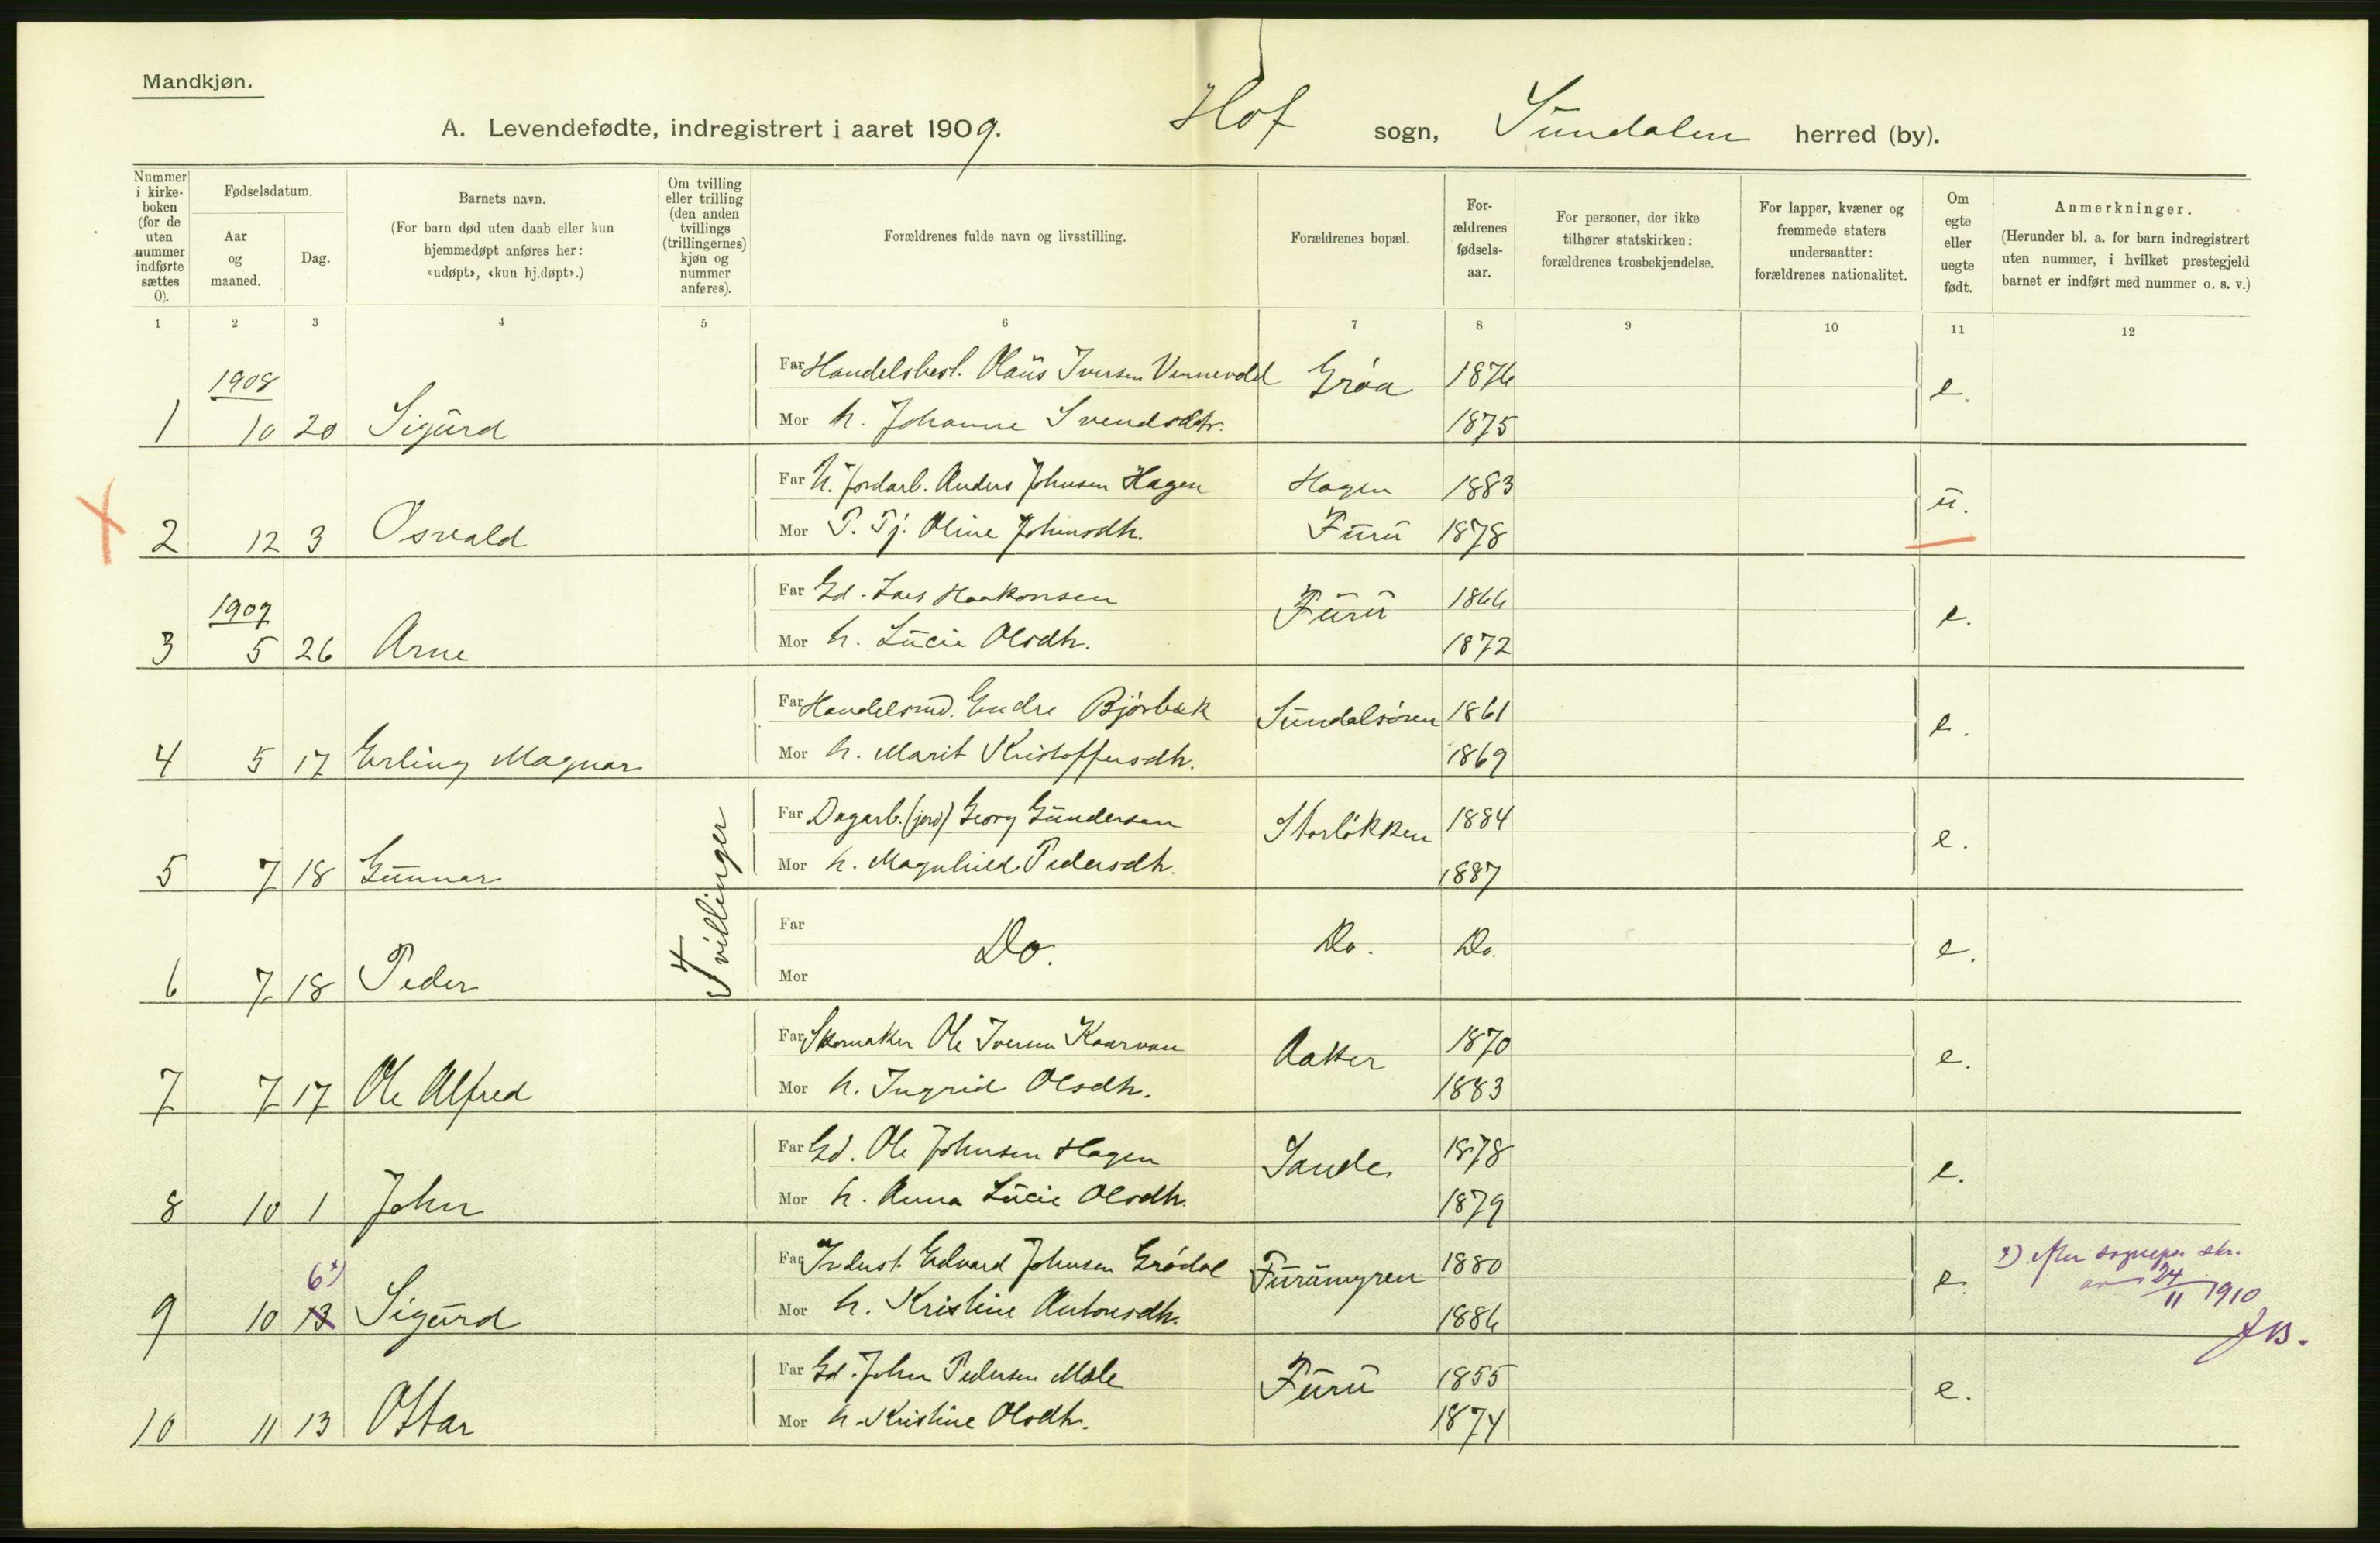 Mandkjøn.
A. Levendefødte, indregistrert i aaret 1909. Hof sogn, Sundalen herred (by).
Nummer i kirke-boken (for de uten nummer indførte sættes 0).
Fødselsdatum.
Aar og maaned.
Dag.
Barnets navn.
(For barn død uten daab eller kun hjemmedøpt anføres her: «udøpt», «kun hj.døpt».)
Om tvilling eller trilling (den anden tvillings (trillingernes) kjøn og nummer anføres).
Forældrenes fulde navn og livsstilling.
Forældrenes bopæl.
For-ældrenes fødsels-aar.
For personer, der ikke tilhører statskirken: forældrenes trosbekjendelse.
For lapper, kvæner og fremmede staters undersaatter: forældrenes nationalitet.
Om egte eller uegte født.
Anmerkninger.
(Herunder bl. a. for barn indregistrert uten nummer, i hvilket prestegjeld barnet er indført med nummer o. s. v.)
1 2 3 4 5 6 7 8 9 10 11 12
1908
Far Handelsbest. Olaus Iversen Grøa 1876
1 10 20 Sigurd Mor h. Johanne Svendsdtr. 1875 e.
Far U. Jordarb. Anders Johnsen Hagen Hagen 1883
2 12 3 Osvald Mor P. Tj. Oline Johnsdtr. Furu 1878 u.
1909
Far Gd. Lars Haakonsen Furu 1866
3 5 26 Arne Mor h. Lucie Olsdtr. 1872 e.
Far Handelsmd. Endre Bjørbæk Sundalsøren 1861
4 5 17 Erling Magnar Mor h. Marit Kristoffersdtr. 1869 e.
Far Dagarb. (jord) Georg Gundersen Storløkken 1884
5 7 18 Gunnar Tvillinger Mor h. Magnhild Pedersdtr. 1887 e.
Far Do. Do. Do.
6 7 18 Peder Mor e.
Far Skomaker Ole Iversen Kaarvan Aaker 1870
7 7 17 Ole Alfred Mor h. Ingrid Olsdtr. 1883 e.
Far Gd. Ole Johnsen Hagen Sande 1878
8 10 1 John Mor h. Anna Lucie Olsdtr. 1879 e.
Far Inderst. Edvard Johnsen Grødal Furumyren 1880
6 x)
9 10 13 Sigurd Mor h. Kristine Antonsdtr. 1886 e.
x) efter sognepr. skr.
av 24/11 1910
Far Gd. John Pedersen Mæle Furu 1855
10 11 13 Ottar Mor h. Kristine Olsdtr. 1874 e.